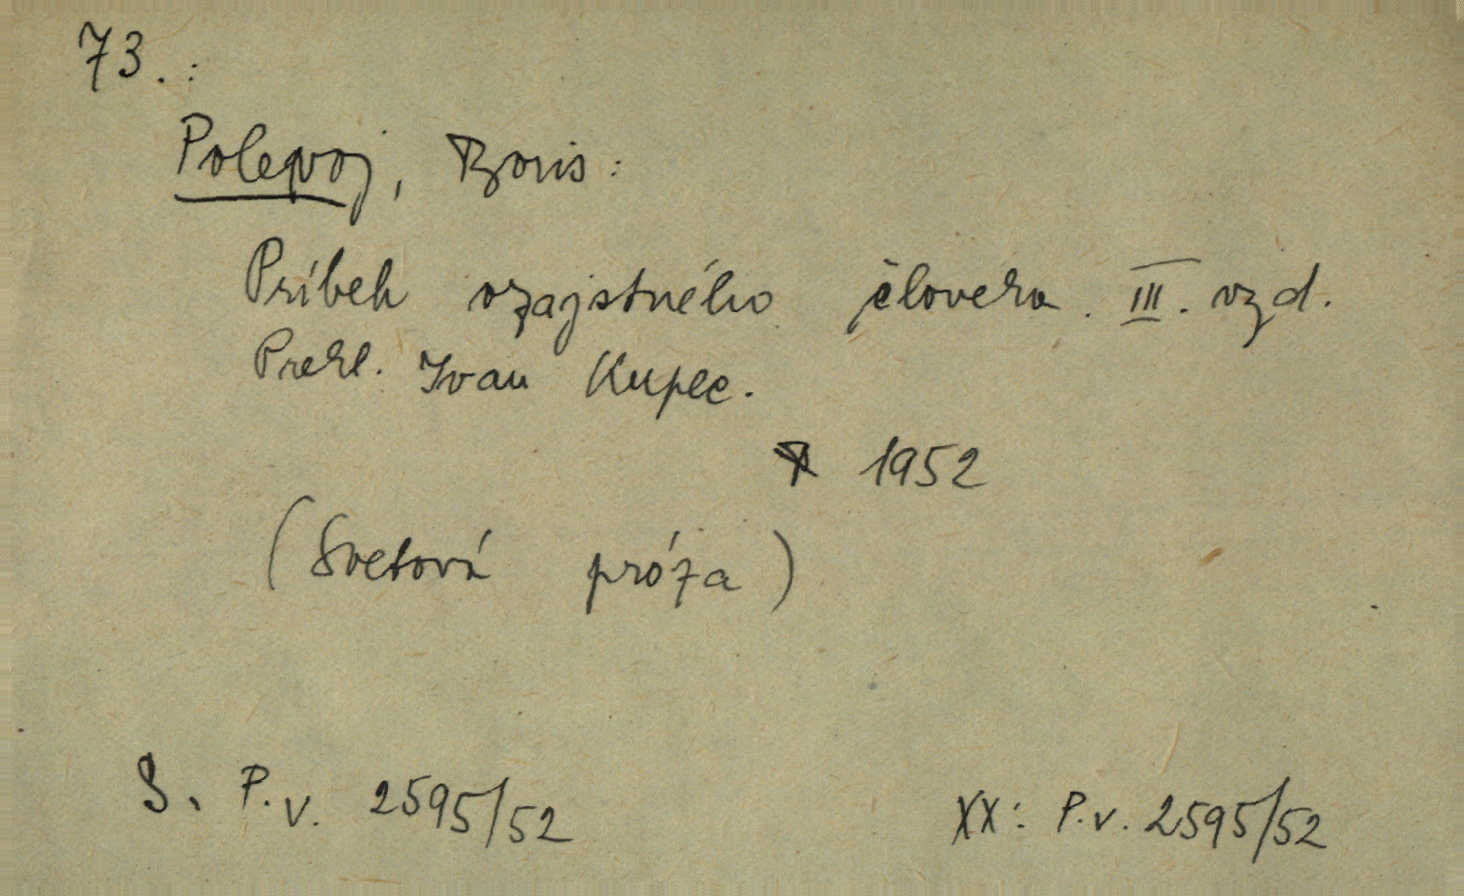 73.:
Polevoj, Boris:
Príbeh ozajstného človeka. III. vyd.
Prekl. Ivan Kupec.
1952
(Svetová próza)
S. P.v. 2595/52
XX: P.v. 2595/52